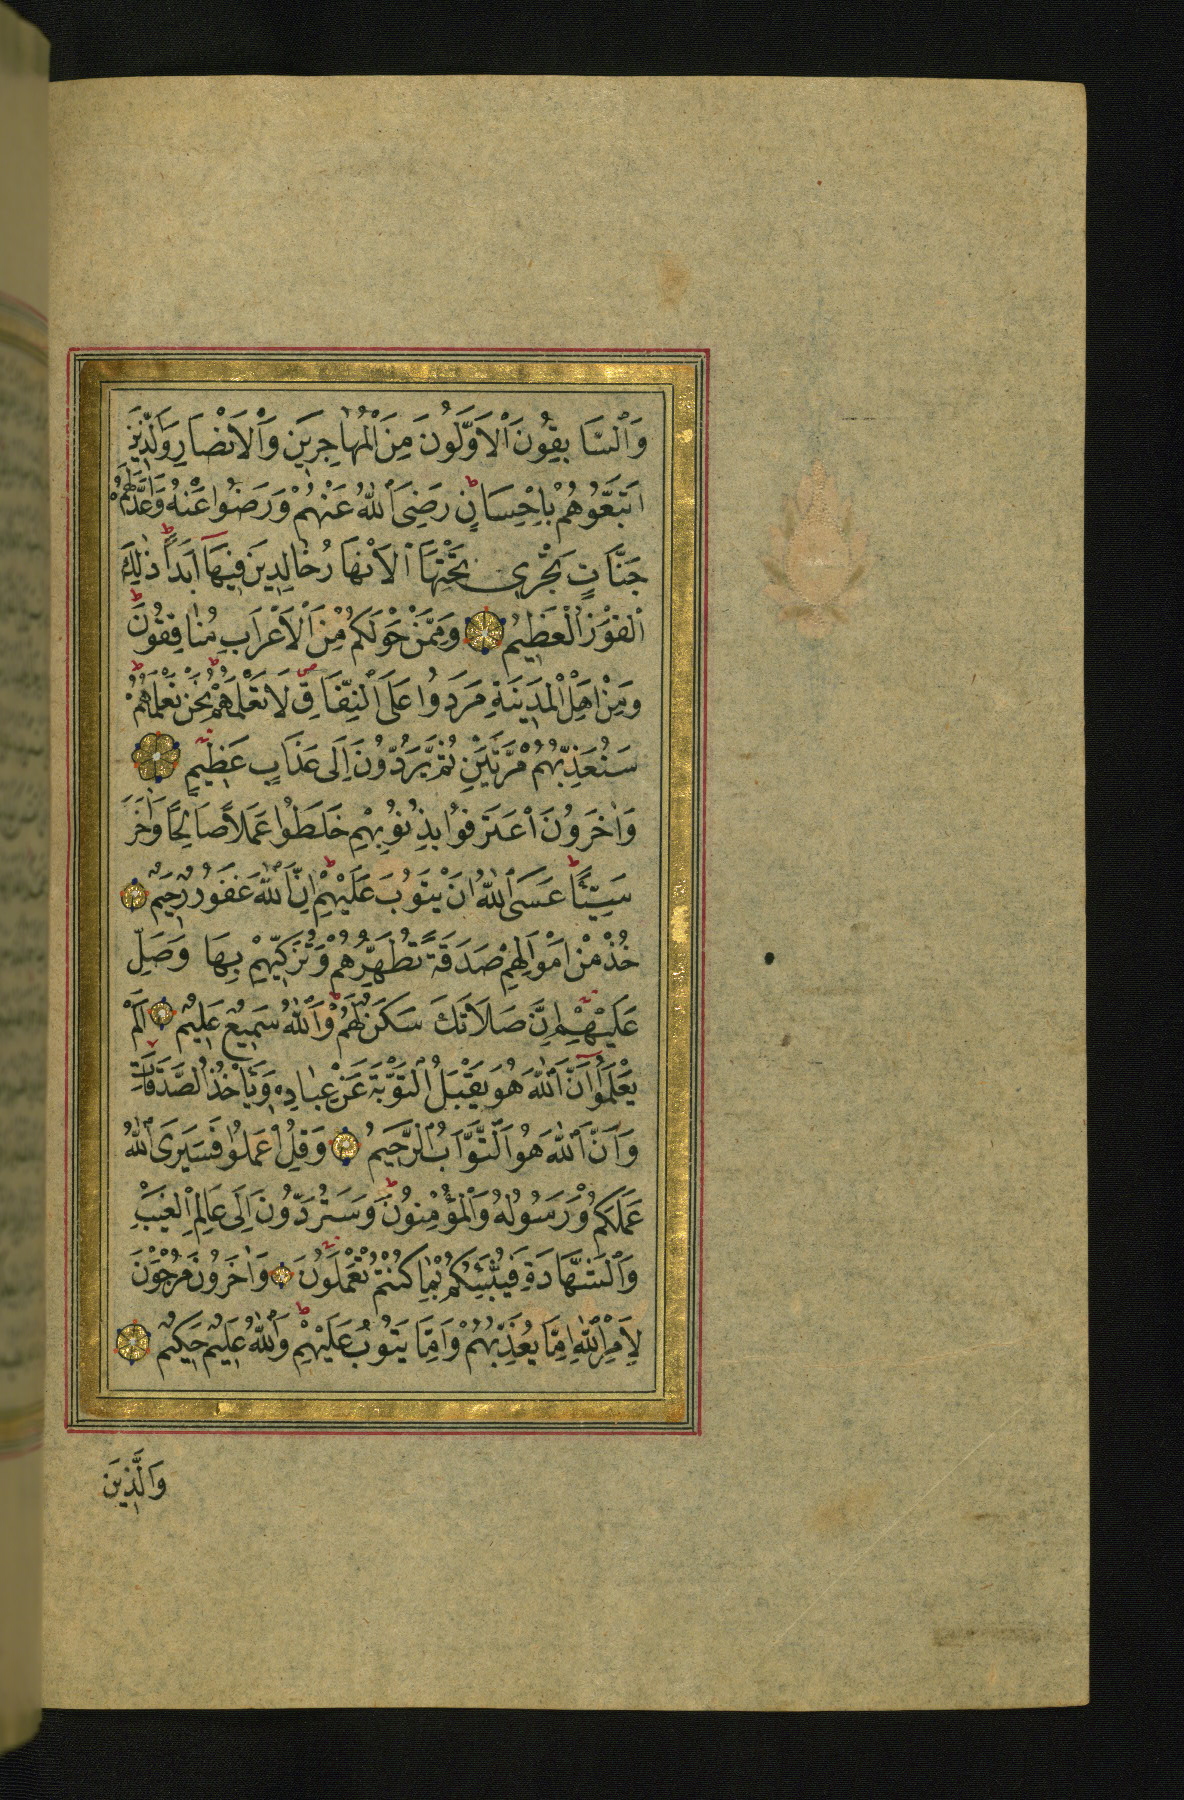 وَالسَّابِقُونَ الْاَوَّلُونَ مِنَ الْمُهَاجِرِينَ وَالْاَنْصَارِ وَالَّذِينَ
اتَّبَعُوهُمْ بِاِحْسَانٍ رَضِىَ اللّٰهُ عَنْهُمْ وَرَضُوا عَنْهُ وَاَعَدَّ لَهُمْ
جَنَّاتٍ تَجْرِى تَحْتَهَا الْاَنْهَارُ خَالِدِينَ فِيهَا اَبَدًا ذٰلِكَ
الْفَوْزُ الْعَظِيمُ وَمِمَّنْ حَوْلَكُمْ مِنَ الْاَعْرَابِ مُنَافِقُونَ
وَمِنْ اَهْلِ الْمَدِينَةِ مَرَدُوا عَلَى النِّفَاقِ لَا تَعْلَمُهُمْ نَحْنُ نَعْلَمُهُمْ
سَنُعَذِّبُهُمْ مَرَّتَيْنِ ثُمَّ يُرَدُّونَ اِلَى عَذَابٍ عَظِيمٍ
وَاٰخَرُونَ اعْتَرَفُوا بِذُنُوبِهِمْ خَلَطُوا عَمَلًا صَالِحًا وَاٰخَرَ
سَيِّئًا عَسَى اللّٰهُ اَنْ يَتُوبَ عَلَيْهِمْ اِنَّ اللّٰهَ غَفُورٌ رَحِيمٌ
خُذْ مِنْ اَمْوَالِهِمْ صَدَقَةً تُطَهِّرُهُمْ وَتُزَكِّيهِمْ بِهَا وَصَلِّ
عَلَيْهِمْ اِنَّ صَلَاتَكَ سَكَنٌ لَهُمْ وَاللّٰهُ سَمِيعٌ عَلِيمٌ اَلَمْ
يَعْلَمُوا اَنَّ اللّٰهَ هُوَ يَقْبَلُ التَّوْبَةَ عَنْ عِبَادِهِ وَيَاْخُذُ الصَّدَقَاتِ
وَاَنَّ اللّٰهَ هُوَ التَّوَّابُ الرَّحِيمُ وَقُلِ اعْمَلُوا فَسَيَرَى اللّٰهُ
عَمَلَكُمْ وَرَسُولُهُ وَالْمُؤْمِنُونَ وَسَتُرَدُّونَ اِلَى عَالِمِ الْغَيْبِ
وَالشَّهَادَةِ فَيُنَبِّئُكُمْ بِمَا كُنْتُمْ تَعْمَلُونَ وَاٰخَرُونَ مُرْجَوْنَ
لِاَمْرِ اللّٰهِ اِمَّا يُعَذِّبُهُمْ وَاِمَّا يَتُوبُ عَلَيْهِمْ وَاللّٰهُ عَلِيمٌ حَكِيمٌ
وَالَّذِينَ